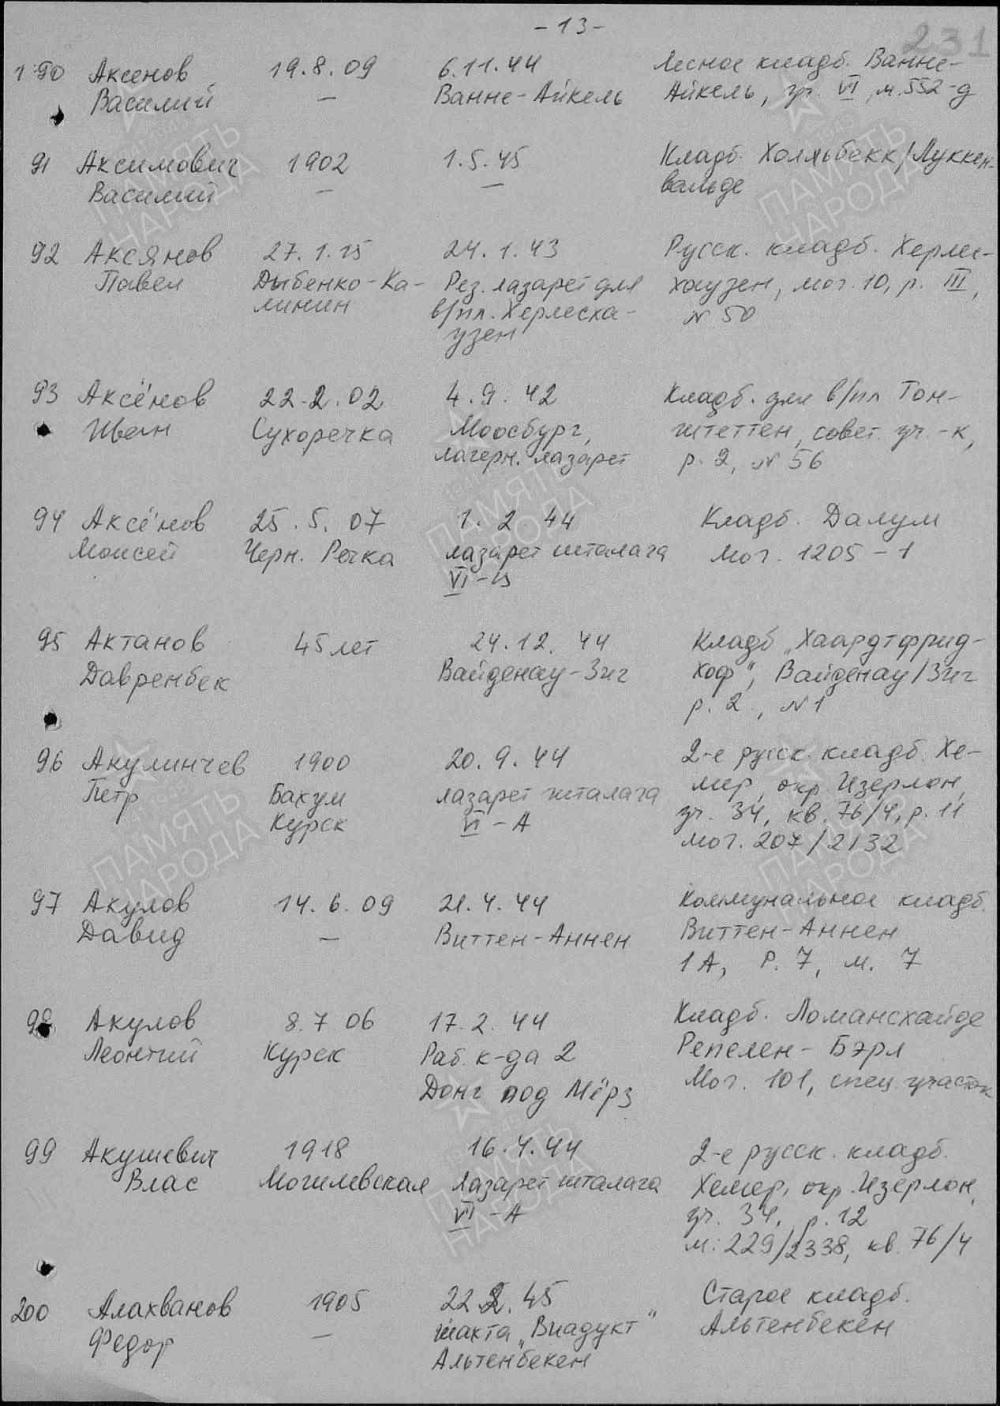 - 13 -
231
190 Аксенов 19.8.09 6.11.44 Лесное кладб. Ванне-
Василий — Ванне-Айкель Айкель, уч. VI, м. 552-д
91 Аксимович 1902 1.5.45 Кладб. Холльбекк/Луккен-
Василий — — вальде
92 Аксянов 27.1.15 24.1.43 Русск. кладб. Херлес-
Павел Дыбенко-Ка- Рез. лазарет для хаузен, мог. 10, р. III,
линин в/пл. Херлесха- № 50
узен
93 Аксёнов 22.2.02 4.9.42 Кладб. для в/пл Тон-
Иван Сухоречка Моосбург, штеттен, совет. уч.-к,
лагерн. лазарет р. 2, № 56
94 Аксёнов 25.5.07 1.2 44 Кладб. Далум
Моисей Черн. Речка лазарет шталага Мог. 1205-1
VI-
95 Актанов 45 лет 24.12.44 Кладб „Хаардтфрид-
Давренбек Вайденау-Зиг хоф", Вайденау/Зиг
р. 2, №1
96 Акулинчев 1900 20.9.44 2-е русск. кладб. Хе-
Петр Бахум лазарет шталага мер, окр. Изерлон,
Курск VI-А уч. 34, кв. 76/4, р. 11
мог. 207/2132
97 Акулов 14.6.09 21.4.44 Коммунальное кладб.
Давид — Виттен-Аннен Виттен-Аннен
1А, Р. 7, м. 7
98 Акулов 8.7 06 17.2.44 Кладб. Ломансхайде
Леонтий Курск Раб. к-да 2 Репелен-Бэрл
Донг под Мёрз Мог. 101, спец. участок
99 Акушевич 1918 16.4.44 2-е русск. кладб.
Влас Могилевская Лазарет шталага Хемер, окр. Изерлон,
VI-А уч. 34, р. 12
м. 229/2338, кв. 76/4
200 Алахванов 1905 22.2.45 Старое кладб.
Федор — шахта „Виадукт" Альтенбекен
Альтенбекен
ПАМЯТЬ
НАРОДА